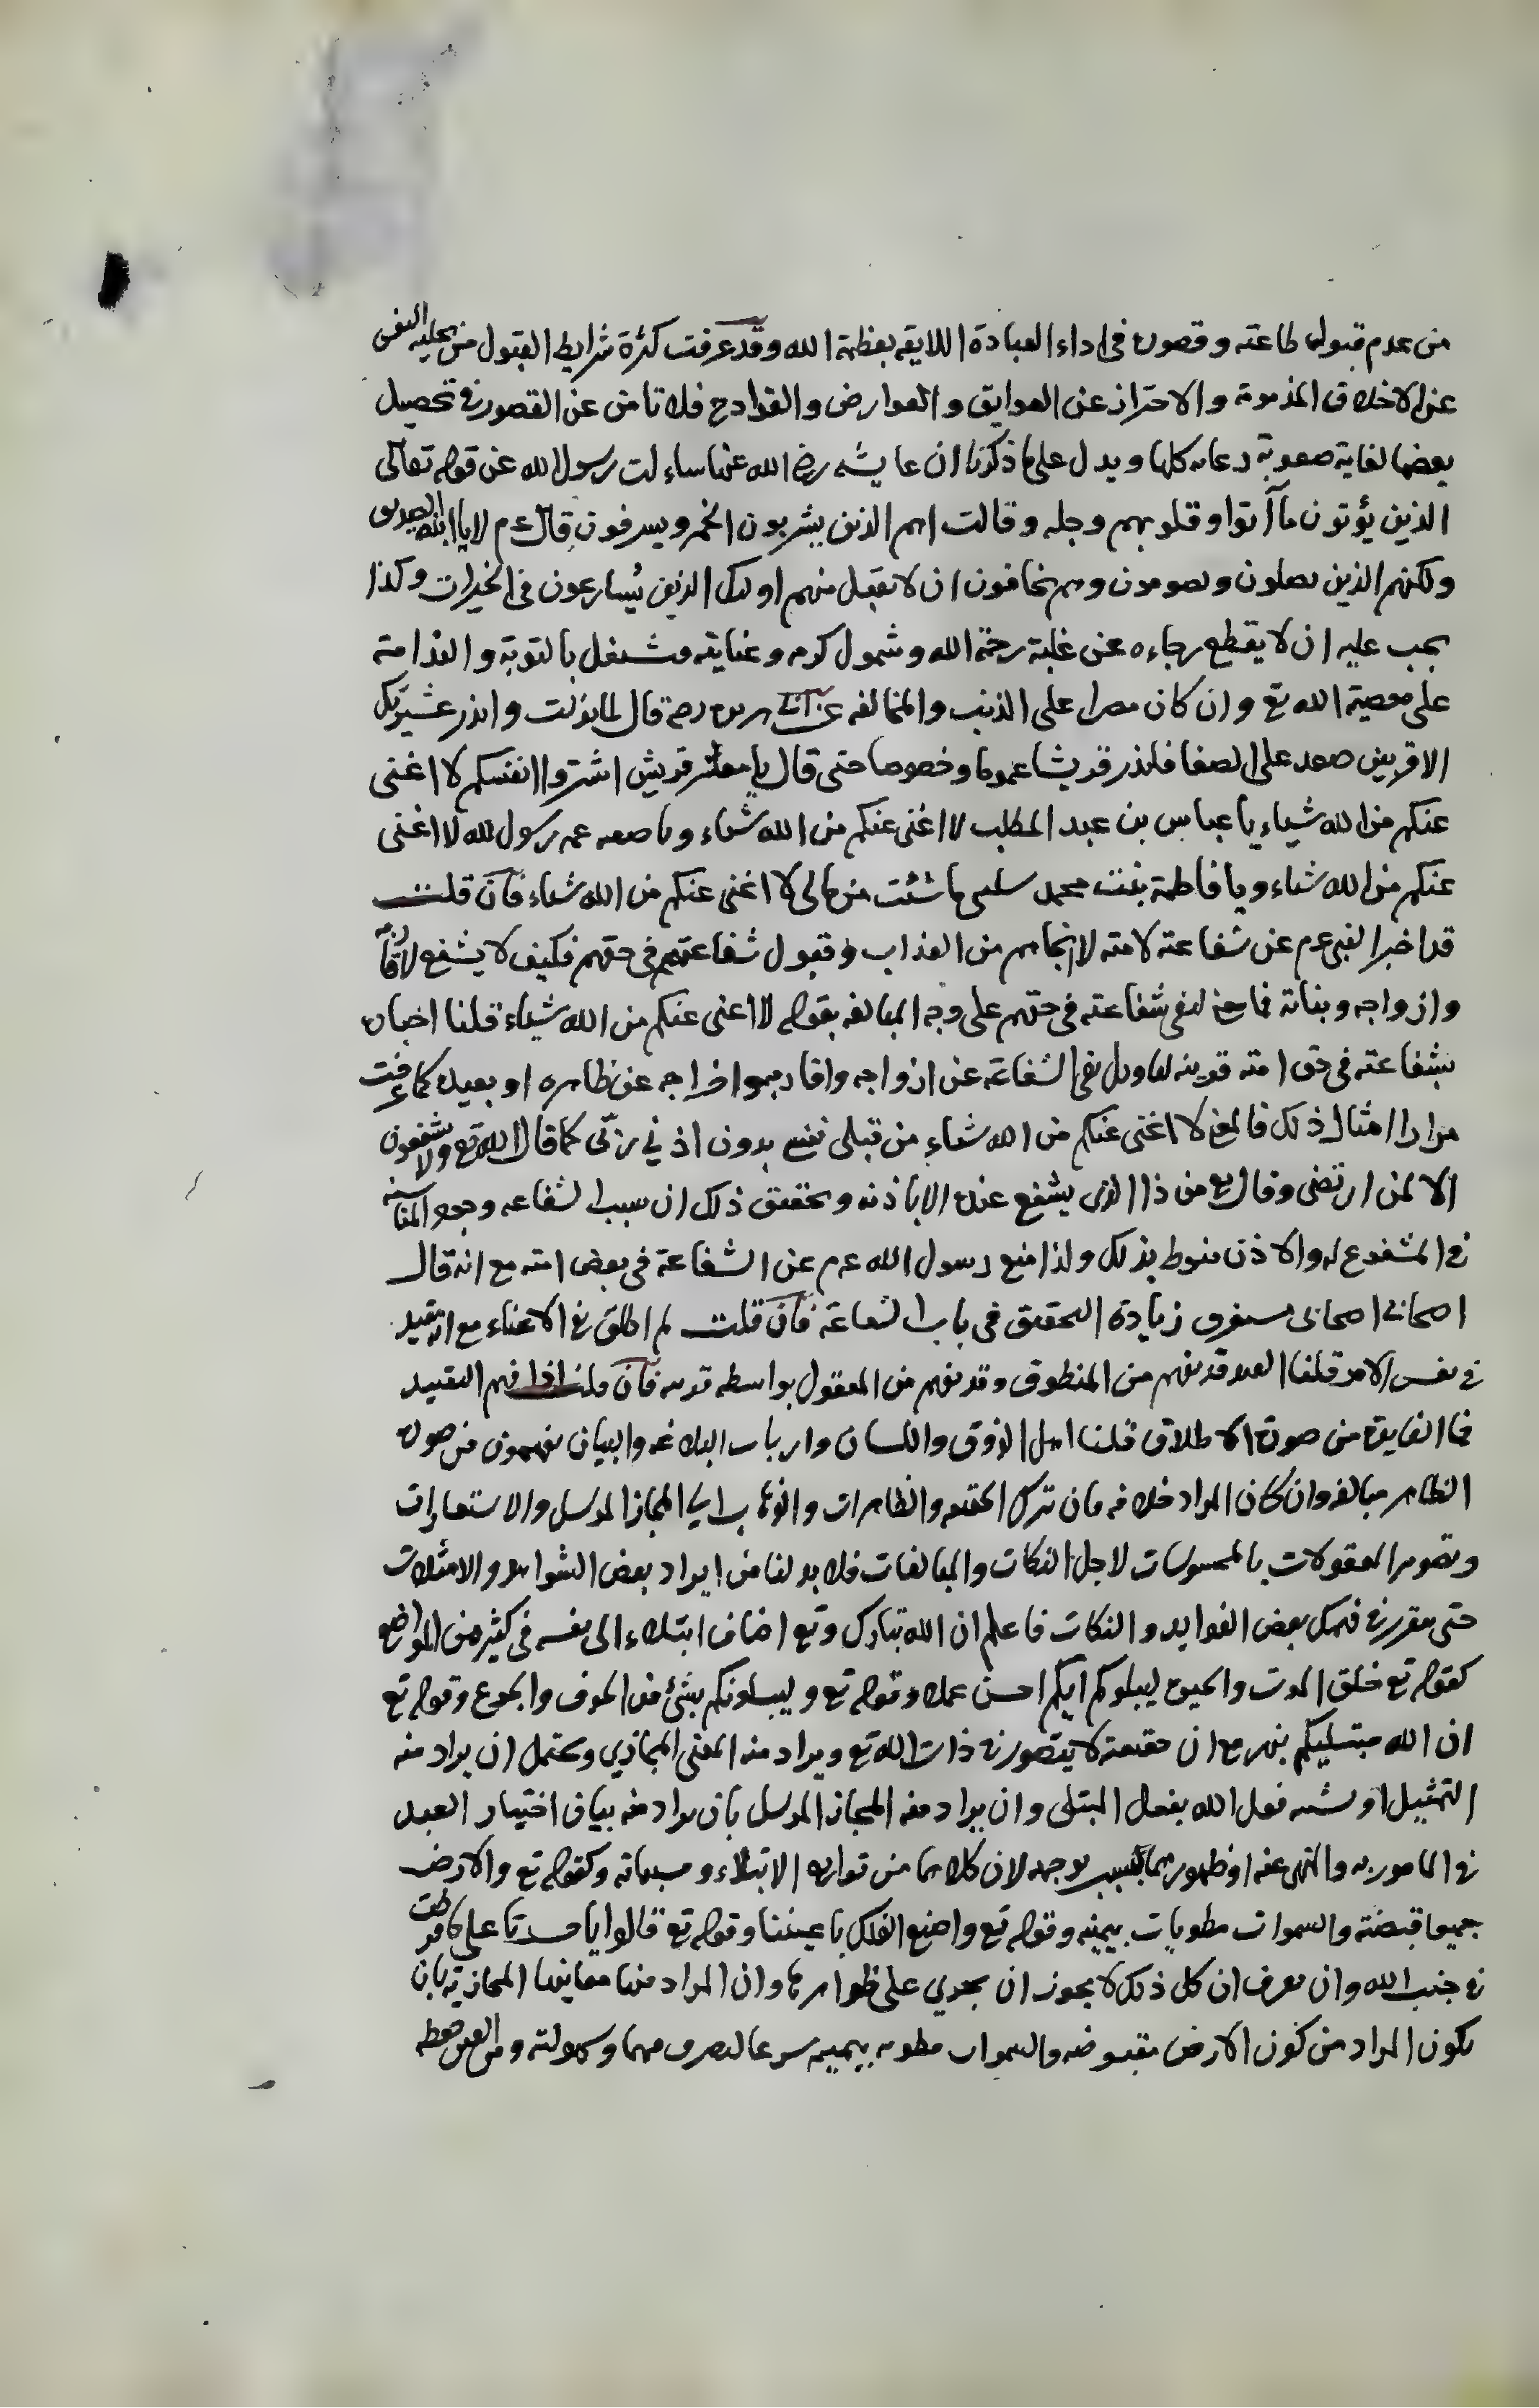 من عدم قبول طاعته وقصوره فى اداء العبادة اللايقه بعظمة الله وقد عرفت كثرة شرايط القبول من تخليه النفس
عن الاخلاق المذمومة والاحتراز عن العوايق والعوارض والقوادح فلا تامن عن القصور فى تحصيل
بعضها لغاية صعوبة رعايه كلها ويدل على ما ذكرنا ان عايشه رضى الله عنها ساءلت رسول الله عن قوله تعالى
الذين يؤتون ما آتوا وقلوبهم وجله وقالت اهم الذين يشربون الخمر ويسرفون قال عم لا يا ابنه الصديق
ولكنهم الذين يصلون ويصومون وهم يخافون ان لا يقبل منهم اولئك الذين يسارعون فى الخيرات وكذا
يجب عليه ان لا يقطع رجاءه عن غلبة رحمة الله وشمول كرمه وعنايته ومشتغل بالتوبة والندامة
على معصية الله تع وان كان مصرا على الذنب والمخالفه عن ابى هريره رضه قال لما نزلت وانذر عشيرتك
الاقربين صعد على الصفا فانذر قريشا عموما وخصوصا حتى قال يا معشر قريش اشتروا انفسكم لا اغنى
عنكم من الله شياء يا عباس بن عبد المطلب لا اغنى عنكم من الله شياء ويا صفيه عمه رسول الله لا اغنى
عنكم من الله شياء ويا فاطمة بنت محمد سلينى ما شئت من مالى لا اغنى عنكم من الله شياء فان قلت
قد اخبر النبى عم عن شفاعته لامته لانجائهم من العذاب وقبول شفاعتهم فى حقهم فكيف لا يشفع لاقاربه
وازواجه وبناته فما معنى لنفى شفاعته فى حقهم على وجه المبالغه بقوله لا اغنى عنكم من الله شياء قلنا اخباره
بشفاعته فى حق امته قرينه لتاويل نفى الشفاعة عن ازواجه واقاربه واخراجه عن ظاهره او بعيده كما عرفت
مرارا امثال ذلك فالمعنى لا اغنى عنكم من الله شياء من قبلى نفسى بدون اذنى ربى كما قال الله تع ولا يشفعون
الا لمن ارتضى وقال تع من ذا الذى يشفع عنده الا باذنه وتحقيق ذلك ان سبب الشفاعه وجود المناسبه
فى المشفوع له والاذن منوط بذلك ولذا منع رسول الله عم عن الشفاعة فى بعض امته مع انه قال
اصحابى اصحابى ستعرف زيادة التحقيق فى باب الشفاعة فان قلت لم اطلق نفى الاغناء مع انه مقيد
فى نفس الامر قلنا القيد قد يفهم من المنطوق وقد يفهم من المعقول بواسطه قرينه فان قلت اذا فهم التقييد
فما الفايدة من صورة الاطلاق قلنا اهل الذوق واللسان وارباب البلاغه والبيان يفهمون من صورة
الظاهر مبالغه وان كان المراد خلافه فان ترك الحقيقه والظاهرات والذهاب الى المجاز المرسل والاستعارات
وتصوير المعقولات بالمحسوسات لاجل النكات والمبالغات فلا بد لنا من ايراد بعض الشواهد والامثلات
حتى يتقرر فى فهمك بعض الفوايد والنكات فاعلم ان الله تبارك وتع اضاف ابتلاء الى نفسه فى كثير من المواضع
كقوله تع خلق الموت والحيوة ليبلوكم ايكم احسن عملا وقوله تع وليبلونكم بشئ من الخوف والجوع وقوله تع
ان الله مبتليكم بنهر مع ان حقيقته لا يتصور فى ذات الله تع ويراد منه المعنى المجازي ويحتمل ان يراد منه
التمثيل او شبه فعل الله بفعل المبتلى وان يراد منه المجاز المرسل بان يراد منه بيان اختيار العبد
فى المامور به والنهى عنه او ظهورهما بسبب توجهه لان كلاهما من توابع الابتلاء ومسبباته وكقوله تع والارض
جميعا قبضته والسموات مطويات بيمينه وقوله تع واصنع الفلك باعيننا وقوله تع قالوا يا حسرتا على ما فرطت
فى جنب الله وان تعرف ان كل ذلك لا يجوز ان يجرى على ظواهرها وان المراد منها معانيها المجازية بان
يكون المراد من كون الارض مقبوضه والسموات مطويه بيمينه التصرف فيهما وسهولته ومن